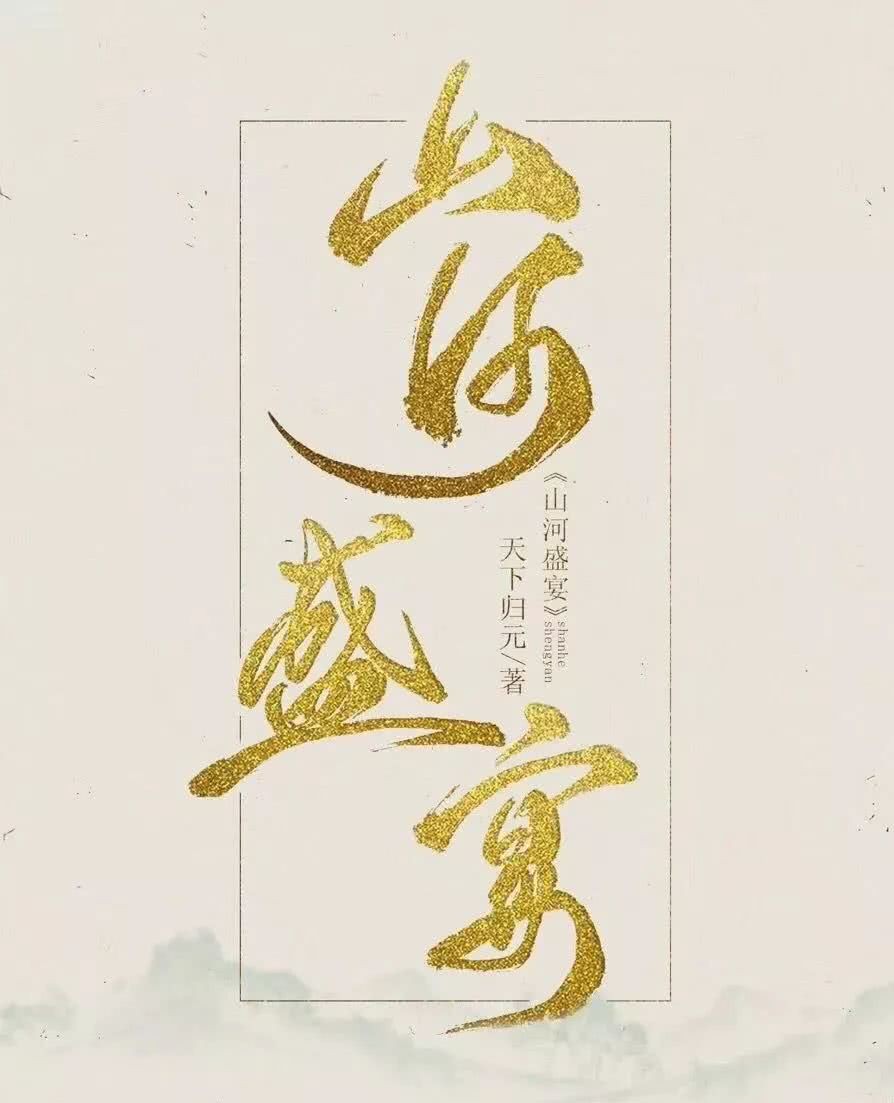 山河
盛
宴
《山河盛宴》
shanhe
shengyan
天下归元/著